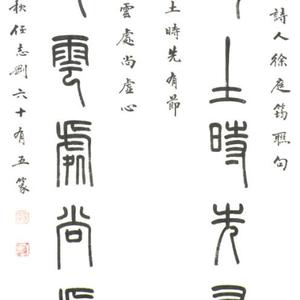 詩人徐庭筠聯句
土時先有
土時先有節
雲處尚虛心
雲處尚
秋任志剛六十有五篆